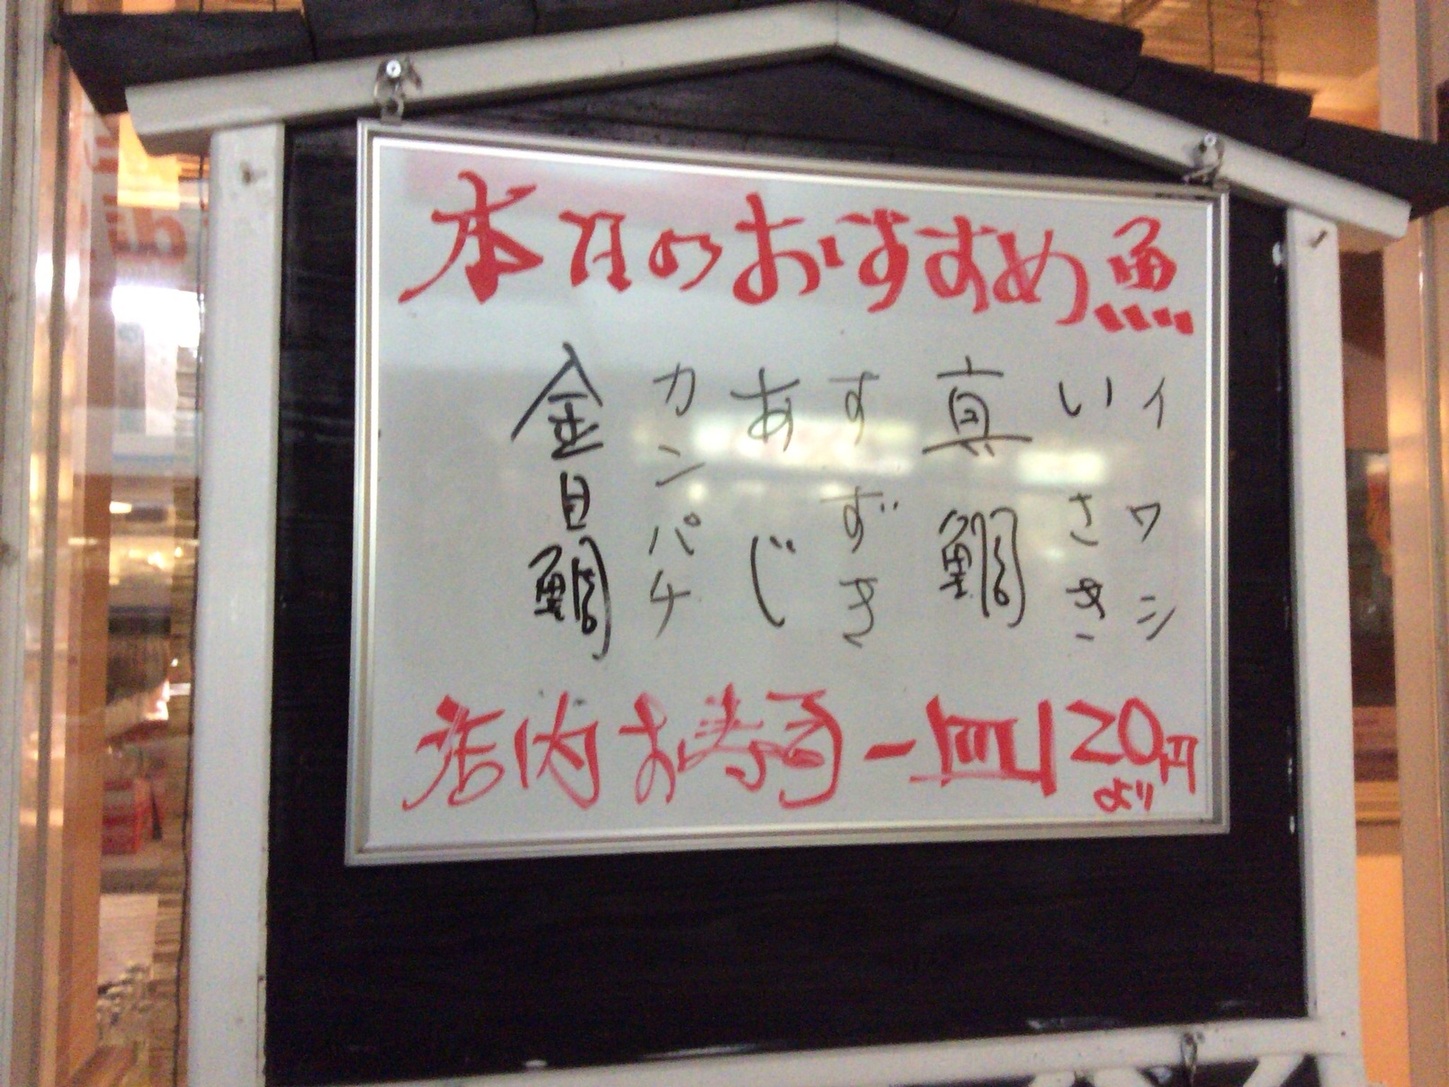 本日のおすすめ魚
イワシ
いさき
真鯛
すずき
あじ
カンパチ
金目鯛
店内お寿司一皿120円
より